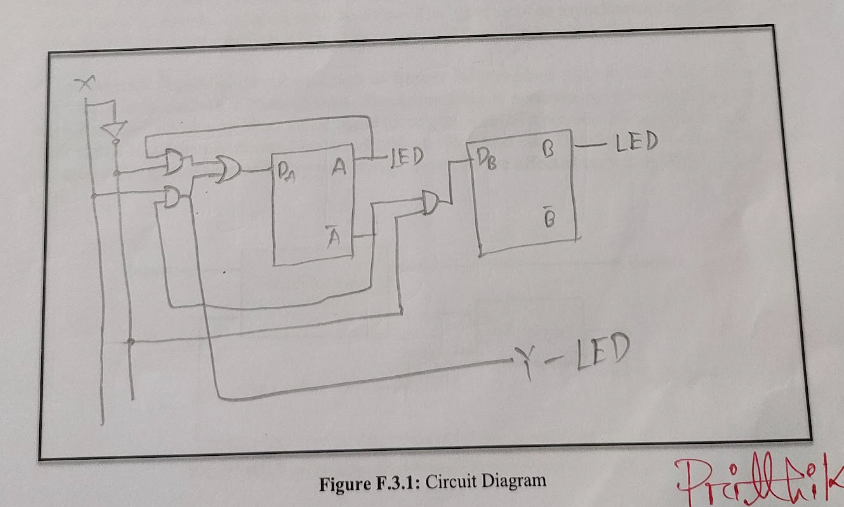 X
D_A A LED
A̅
D_B B LED
B̅
Y - LED
Figure F.3.1: Circuit Diagram